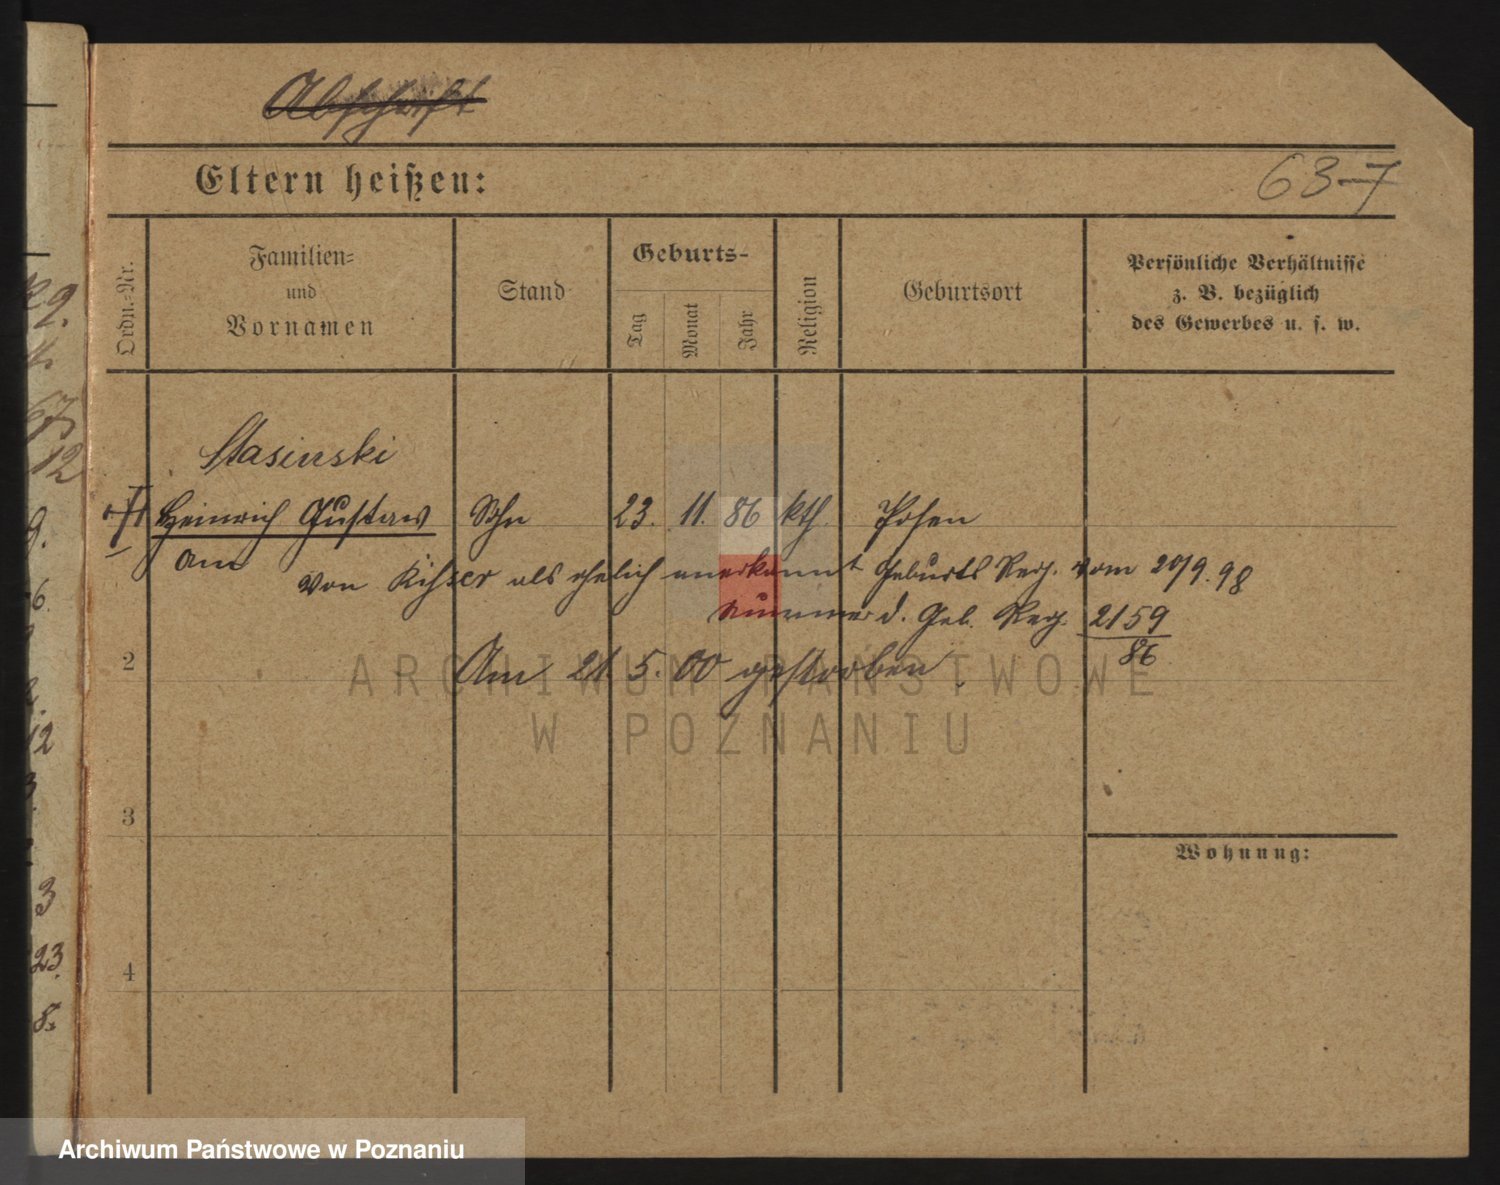 Abschrift
Eltern heißen:
63-7
Ordn.-Nr.
Familien-
und
Vornamen
Stand
Geburts-
Tag
Monat
Jahr
Religion
Geburtsort
Persönliche Verhältnisse
z. B. bezüglich
des Gewerbes u. s. w.
Stasinski
Heinrich Gustav Sohn 23. 11. 86 kth. Posen
am
von als ehelich anerkannt Geburts Reg. vom 20/9. 98
Nummer d. Geb. Reg. 2159
86
2
Am 21. 5. 00 gestorben.
ARCHIWUM PAŃSTWOWE
W POZNANIU
3
Wohnung:
4
R 9.
12
9.
6.
12
3.
3
23.
8.
Archiwum Państwowe w Poznaniu